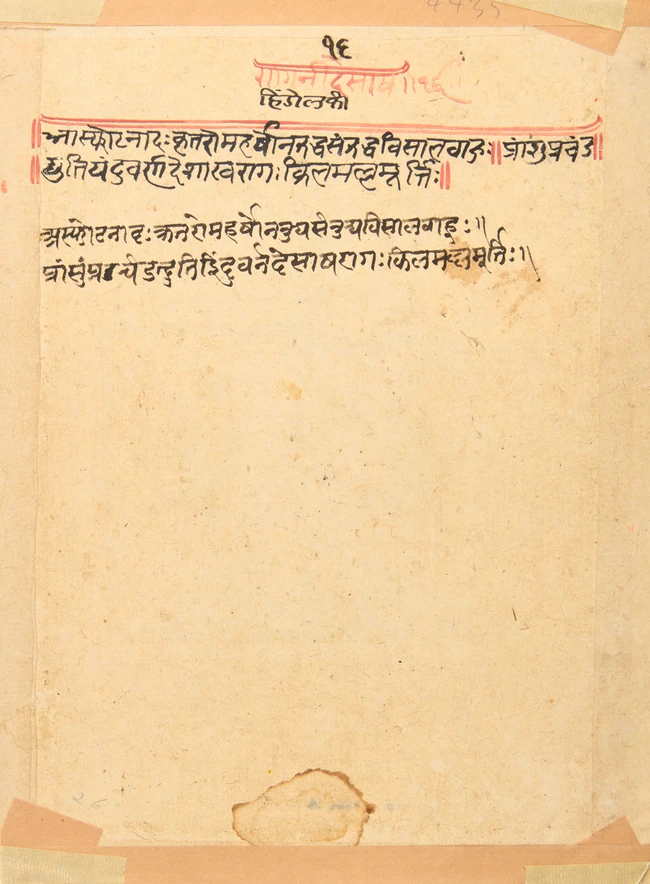 १६
रागनी देसाष ॥१६
हिंडोलकी
॥आस्फोटनादः कृतरोमहर्षो नरुद्धसंरुद्धविसालबाहुः॥ प्रांशुप्रचंड॥
॥द्युतियंदुवर्ण देशाखरागः किलमल्लमूर्त्तिः॥
अस्फोटनादृः कृतरोमहर्षो विसालबाहुः॥
प्रांसुंप्रचंडद्दुतिइिंदुवर्नदेसाषरागः किलमल्लमूर्त्तिः॥